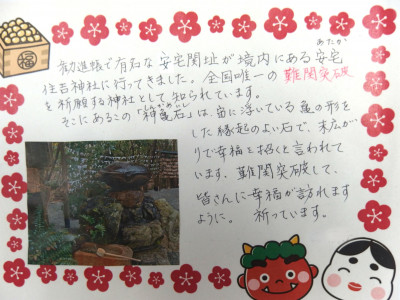 福
勧進帳で有名な安宅関址が境内にある安宅
あたか
住吉神社に行ってきました。全国唯一の難関突破
を祈願する神社として知られています。
しんかめいし
そこにあるこの「神亀石」は、宙に浮いている亀の形を
した縁起のよい石で、末広が
りで幸福を招くと言われて
います。難関突破して、
皆さんに幸福が訪れます
ように。祈っています。